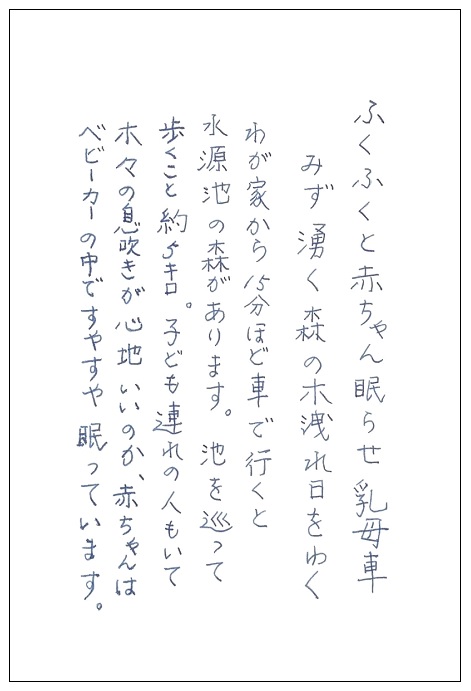 ふくふくと赤ちゃん眠らせ乳母車
みず湧く森の木洩れ日をゆく
わが家から15分ほど車で行くと
水源池の森があります。池を巡って
歩くこと約5キロ。子ども連れの人もいて
木々の息吹きが心地いいのか、赤ちゃんは
ベビーカーの中ですやすや眠っています。